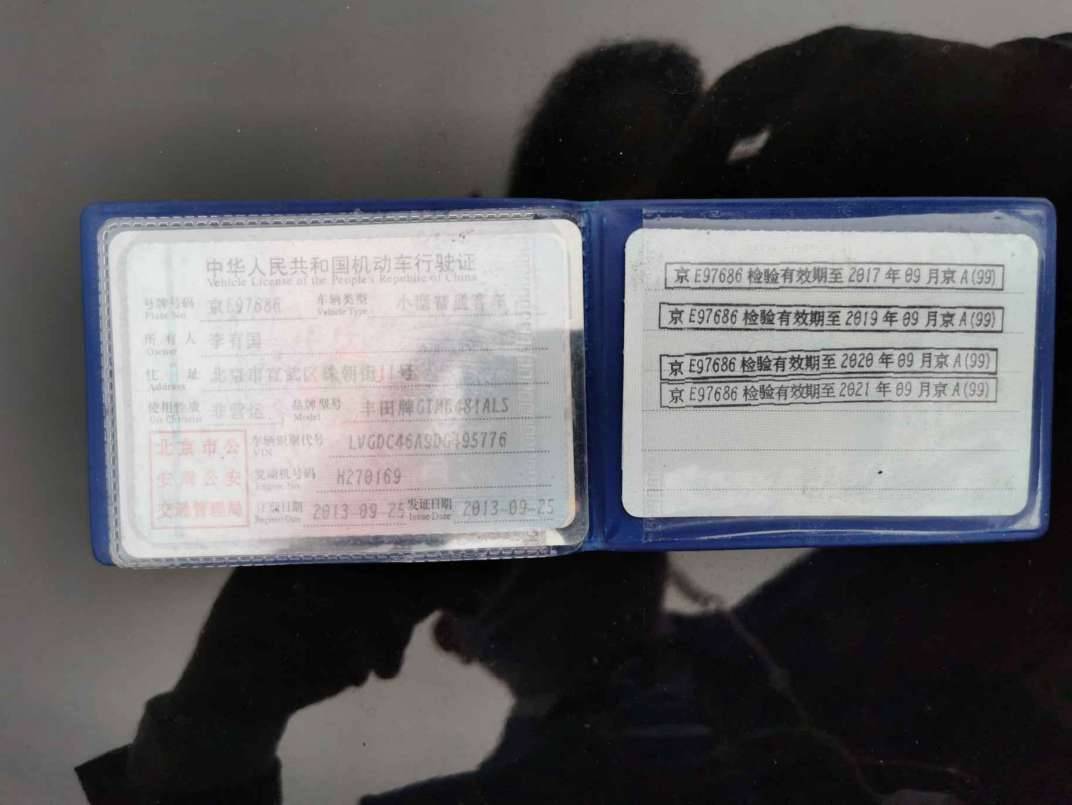 中华人民共和国机动车行驶证
Vehicle License of the People's Republic of China
号牌号码 京E97686 车辆类型 小型普通客车
Plate No. Vehicle Type
所有人 李有国
Owner
住址 北京市宣武区珠朝街11号
Address
使用性质 非营运 品牌型号 丰田牌GTM6481ALS
Use Character Model
北京市公 车辆识别代号 LVGDC46A9DG495776
VIN
安局公安 发动机号码 H270169
Engine No.
交通管理局 注册日期 2013-09-25 发证日期 2013-09-25
Register Date Issue Date
京E97686检验有效期至2017年09月京A(99)
京E97686检验有效期至2019年09月京A(99)
京E97686检验有效期至2020年09月京A(99)
京E97686检验有效期至2021年09月京A(99)